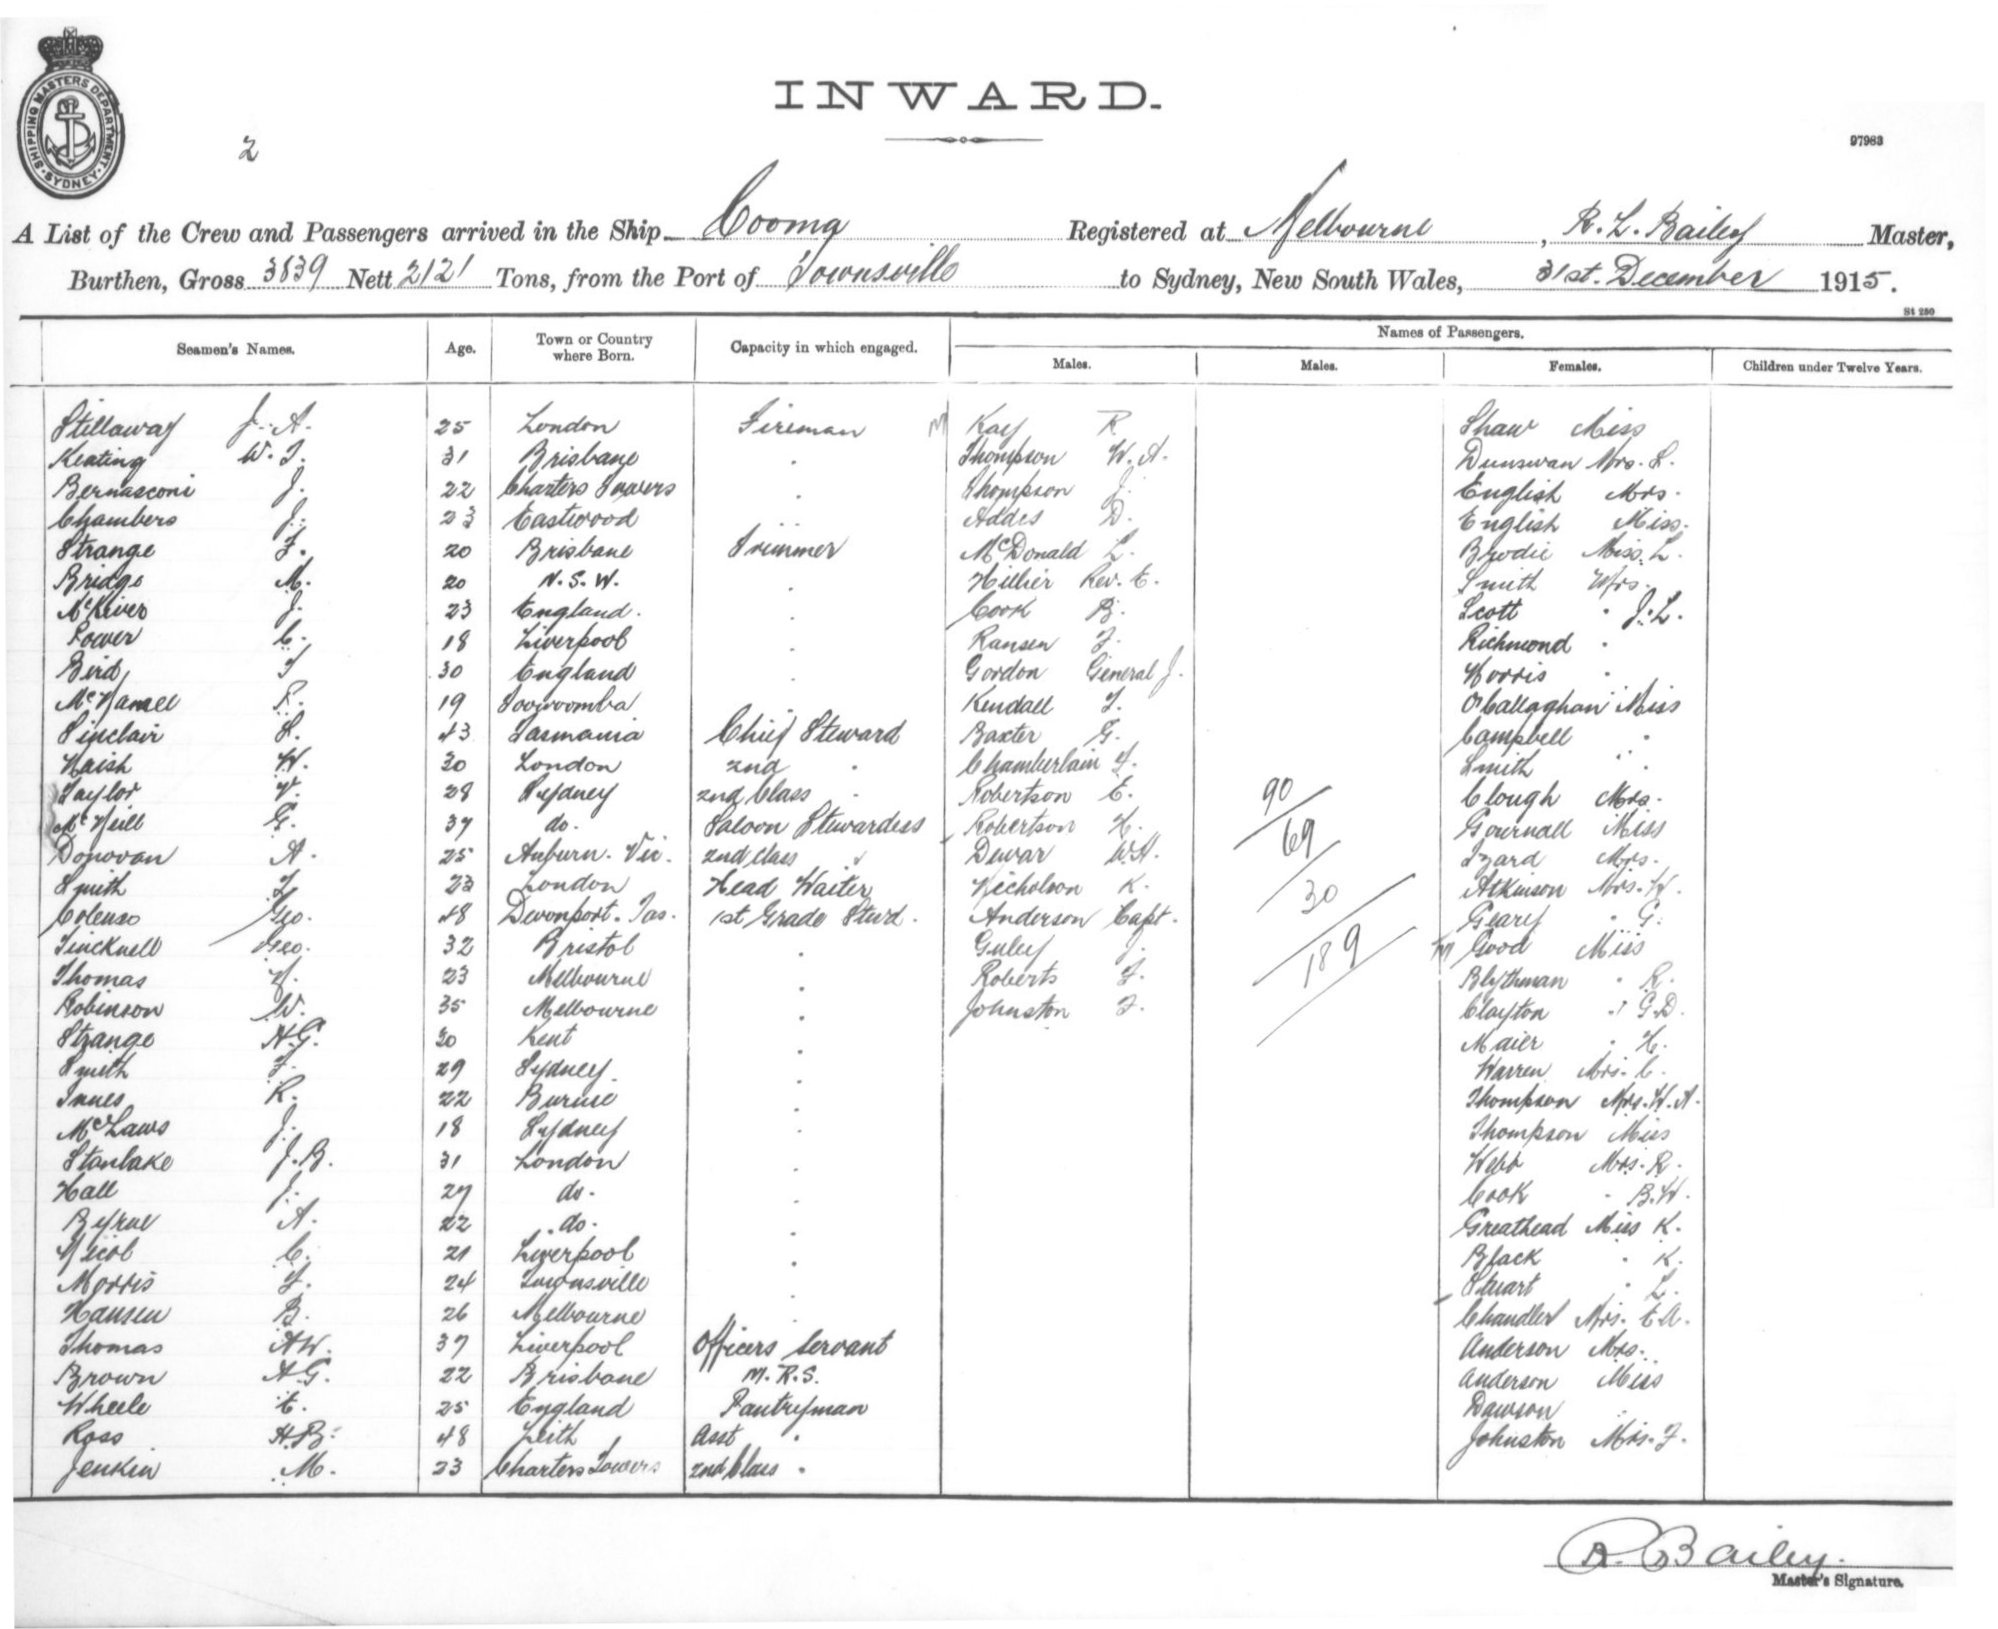 SHIPPING MASTERS DEPARTMENT. SYDNEY
2
INWARD.
97983
A List of the Crew and Passengers arrived in the Ship Cooma Registered at Melbourne, R. L. Bailey Master,
Burthen, Gross 3839 Nett 2121 Tons, from the Port of Townsville to Sydney, New South Wales, 31st. December 1915.
St 250
Seamen's Names. Age. Town or Country where Born. Capacity in which engaged. Names of Passengers.
Males. Males. Females. Children under Twelve Years.
Stillaway J. A. 25 London Fireman M Kay R Shaw Miss
Keating W. J. 31 Brisbane " Thompson W. A. Dunswan Mrs. L.
Bernasconi J. 22 Charters Towers " Thompson J. English Mrs.
Chambers J. 23 Eastwood Addes D. English Miss.
Strange F. 20 Brisbane Trimmer McDonald L. Brodie Miss. L.
Bridge M. 20 N. S. W. " Hillier Rev. E. Smith Mrs.
McKiver J. 23 England. " Cook B. Scott " J. L.
Power C. 18 Liverpool " Ransen F. Richmond "
Bird T 30 England " Gordon General J. Morris "
R. 19 Toowoomba Kendall F. O'Callaghan Miss
Sinclair L. 43 Tasmania Chief Steward Baxter G. Campbell "
Naish W. 30 London 2nd " Chamberlain Smith "
Taylor V. 28 Sydney 2nd Class " Robertson E. 90 Clough Mrs.
McNeill G. 37 do. Saloon Stewardess Robertson H. 69 Gournall Miss
Donovan A. 25 Auburn. Vic. 2nd Class " Dewar W.A. Izard Mrs.
Smith F 23 London Head Waiter Nicholson K. 30 Atkinson Mrs. W.
Colenso Geo. 48 Devonport. Tas. 1st Grade Stwd. Anderson Capt. Geary " G.
Tincknell Geo. 32 Bristol " Guley J. 189 M Good Miss
Thomas 23 Melbourne " Roberts F. Blythman " R.
Robinson W. 35 Melbourne " Johnston F. Clayton " G.D.
Strange H.G. 30 Kent " Maier " H.
Smith F. 29 Sydney. " Warren Mrs. C.
Innes R. 22 Burnie " Thompson Mrs. W. A.
McLaws J. 18 Sydney " Thompson Miss
Stanlake J. B. 31 London " Webb Mrs. R.
Hall J. 27 do. " Cook " B. W.
Byrne A. 22 do. " Greathead Miss K.
Nicol C. 21 Liverpool " Black " K.
Morris F. 24 Townsville " Stuart " L.
Hansen B. 26 Melbourne " Chandler Mrs. E A.
Thomas A W. 37 Liverpool Officers Servant Anderson Mrs.
Brown A G. 22 Brisbane M. R. S. Anderson Miss
Wheele E. 25 England Pantryman Dawson "
Ross H. B. 48 Leith Asst " Johnston Mrs. F.
Jenkin M. 23 Charters Towers 2nd Class "
R. Bailey.
Master's Signature.